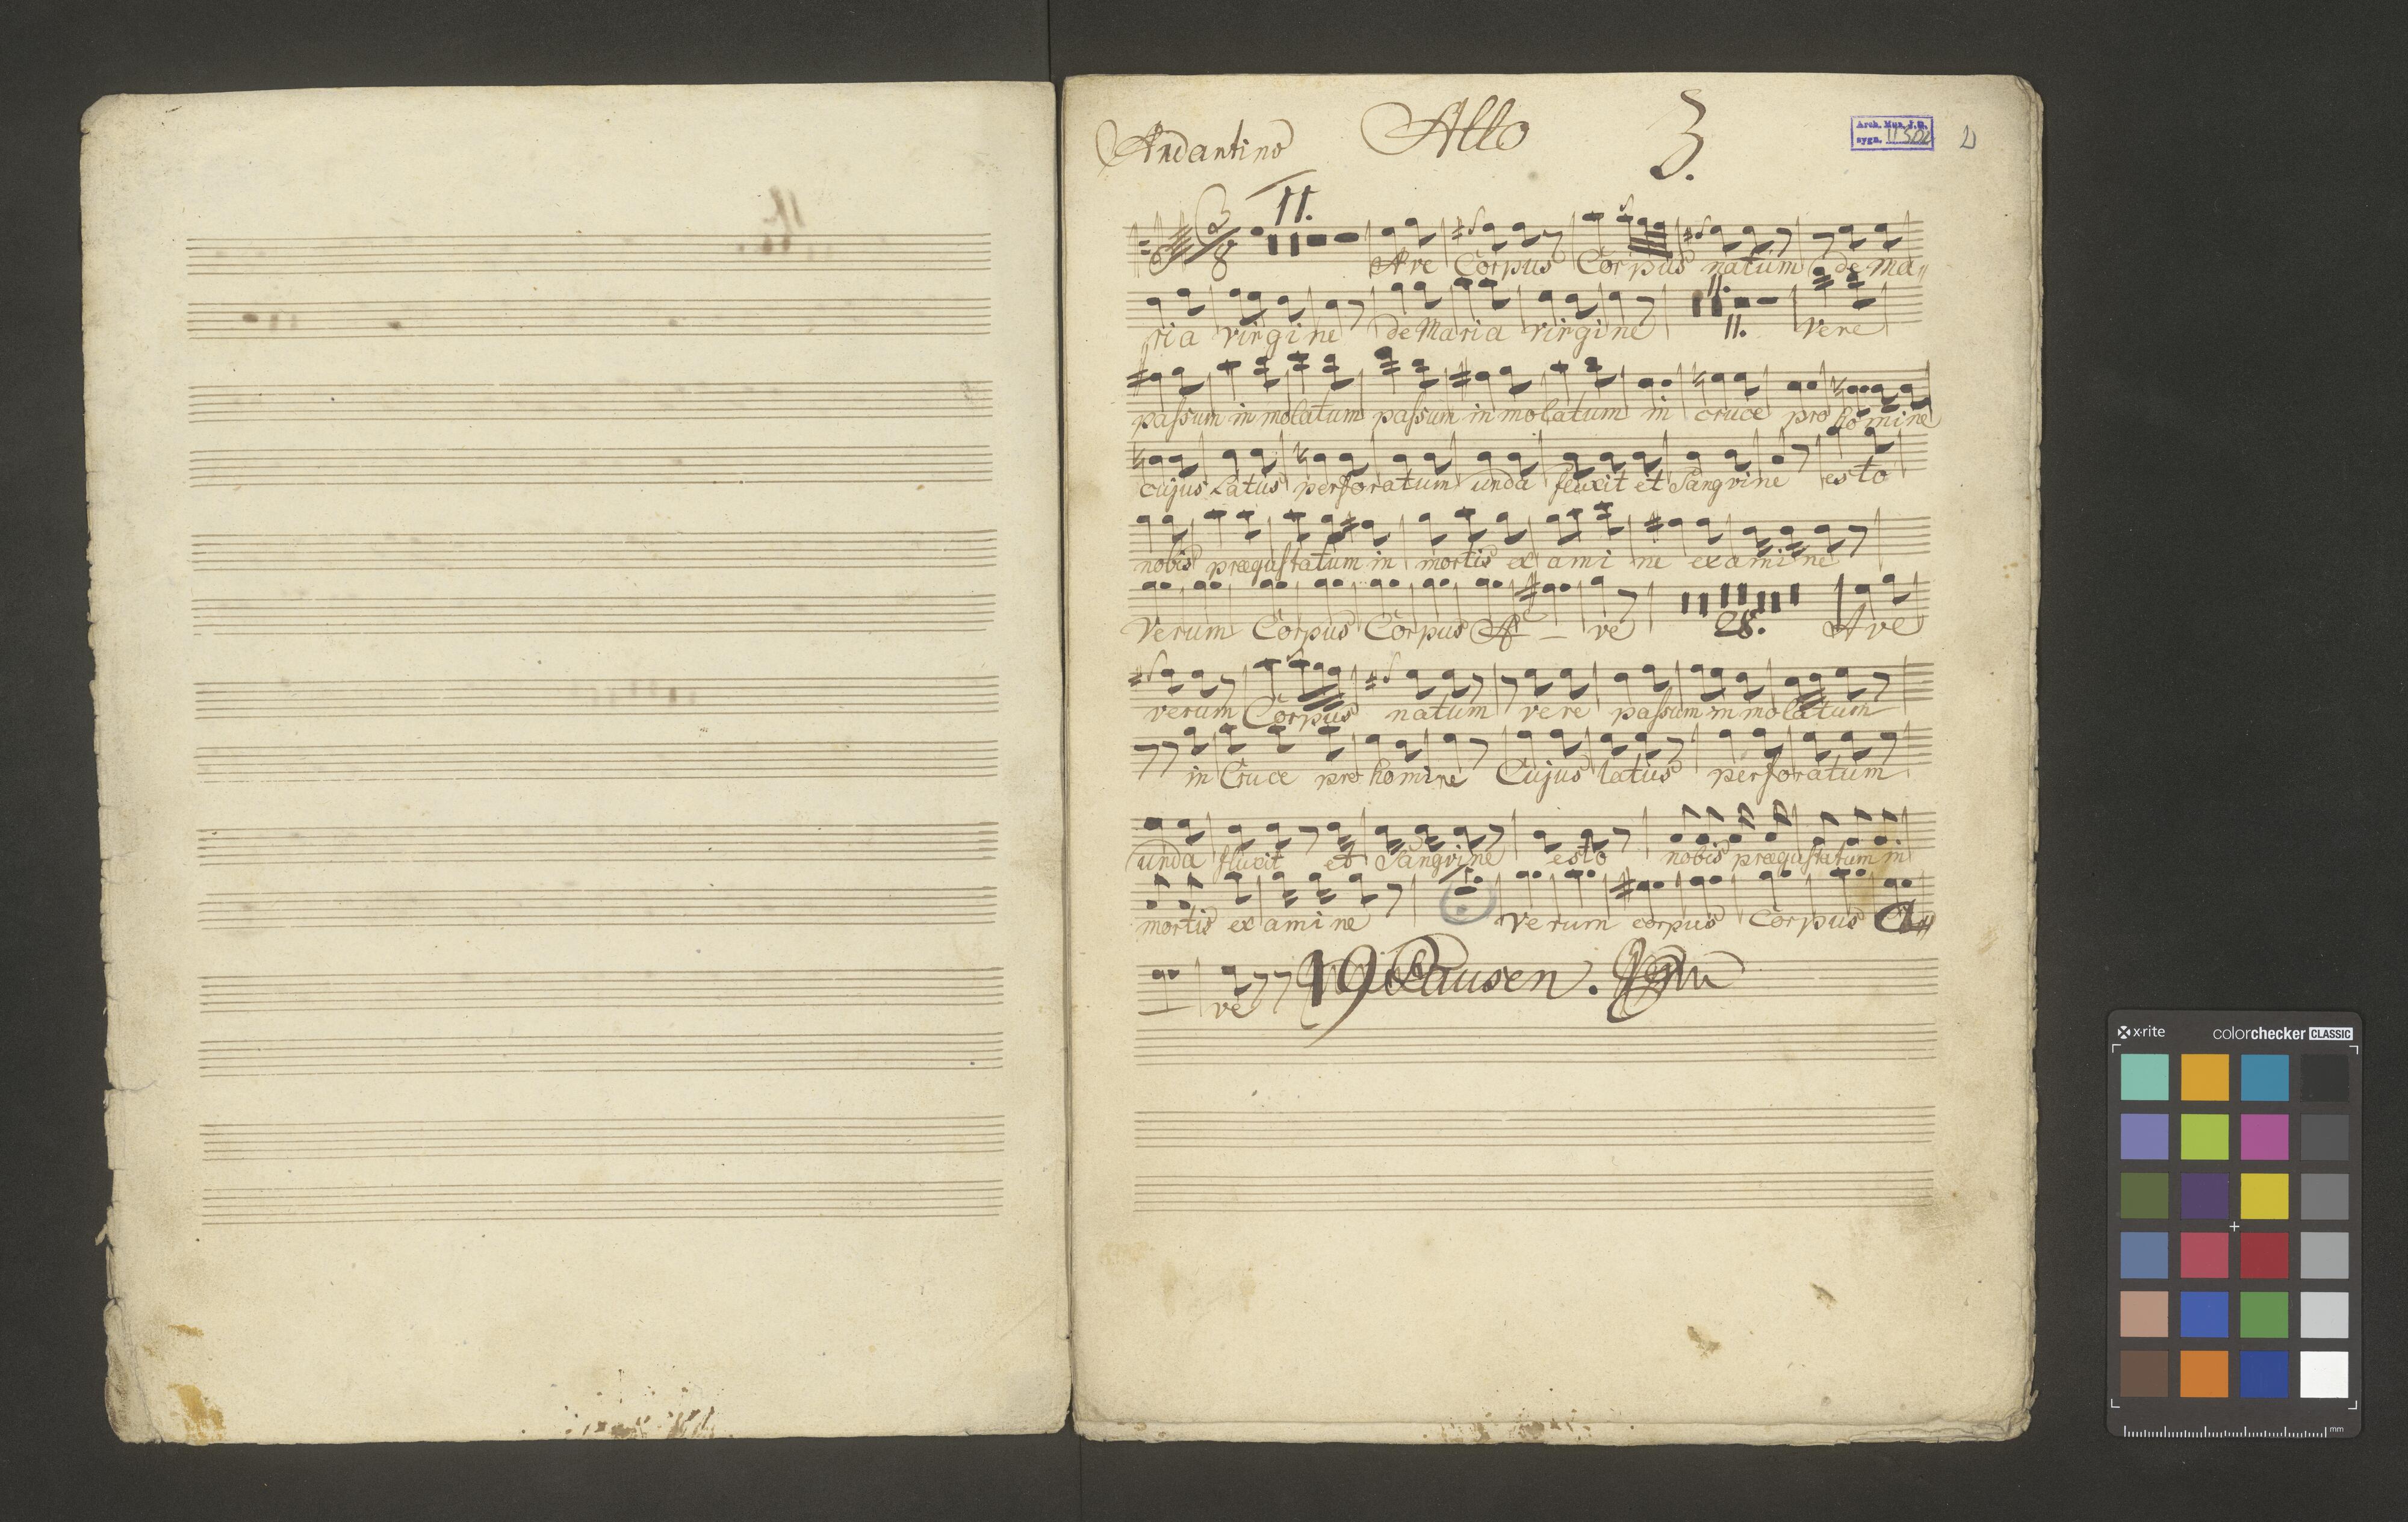 Andantino Alto 3.
Arch. Mus. J. G.
sygn.
2
3
8
11.
Ave Corpus Corpus natum de Ma"
ria virgine de Maria virgine 11. 11. vere
passum in molatum passum in molatum in cruce pro homine
cujus Latus perforatum unda fluxit et Sangvine esto
nobis prægustatum in mortis ex ami ne examine
Verum Corpus Corpus A — ve 28. Ave
verum Corpus natum vere passum in molatum
in Cruce pro homine Cujus latus perforatum
unda fluxit et Sangvine esto nobis prægustatum in
mortis examine 1. Verum corpus Corpus A"
— ve 19 Pausen.
x·rite colorchecker CLASSIC
mm